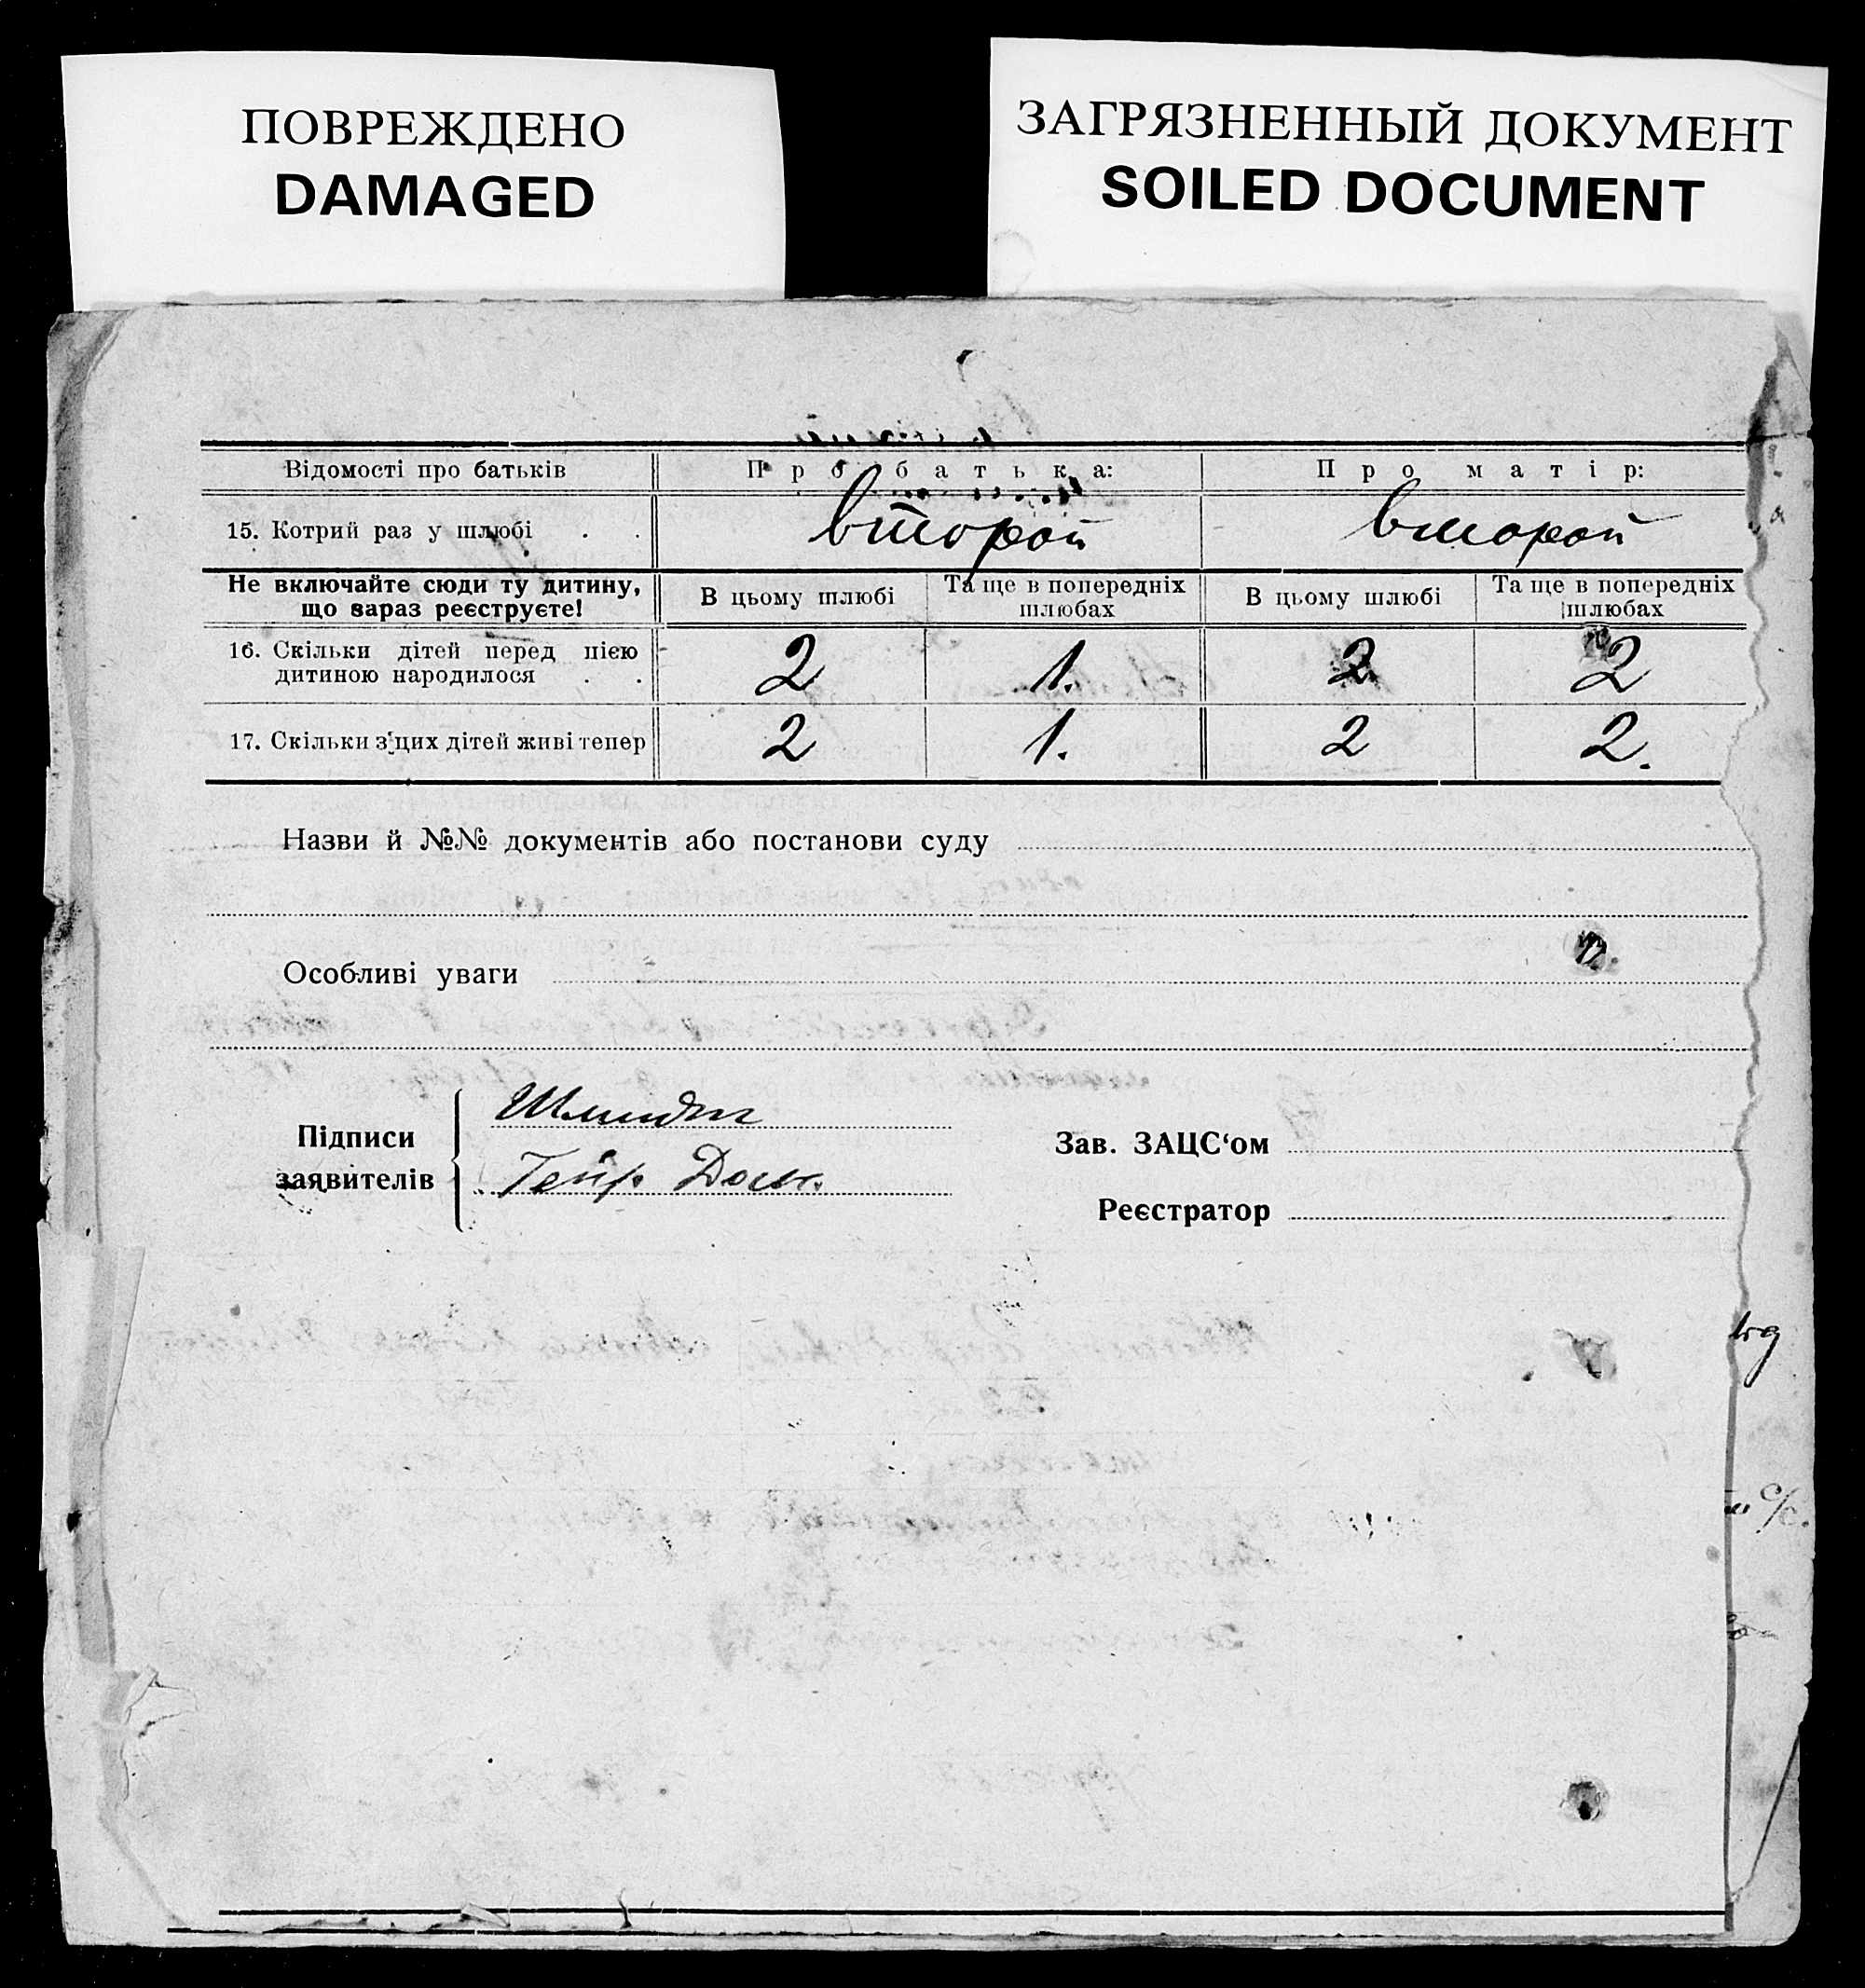 ПОВРЕЖДЕНО
DAMAGED
ЗАГРЯЗНЕННЫЙ ДОКУМЕНТ
SOILED DOCUMENT
Відомості про батьків Про батька: Про матір:
15. Котрий раз у шлюбі . . второй второй
Не включайте сюди ту дитину, що зараз реєструєте! В цьому шлюбі Та ще в попередніх шлюбах В цьому шлюбі Та ще в попередніх шлюбах
16. Скільки дітей перед цією
дитиною народилося . . 2 1. 2 2
17. Скільки з цих дітей живі тепер 2 1. 2 2.
Назви й №№ документів або постанови суду
Особливі уваги
Підписи
заявителів
Зав. ЗАЦС‘ом
Реєстратор